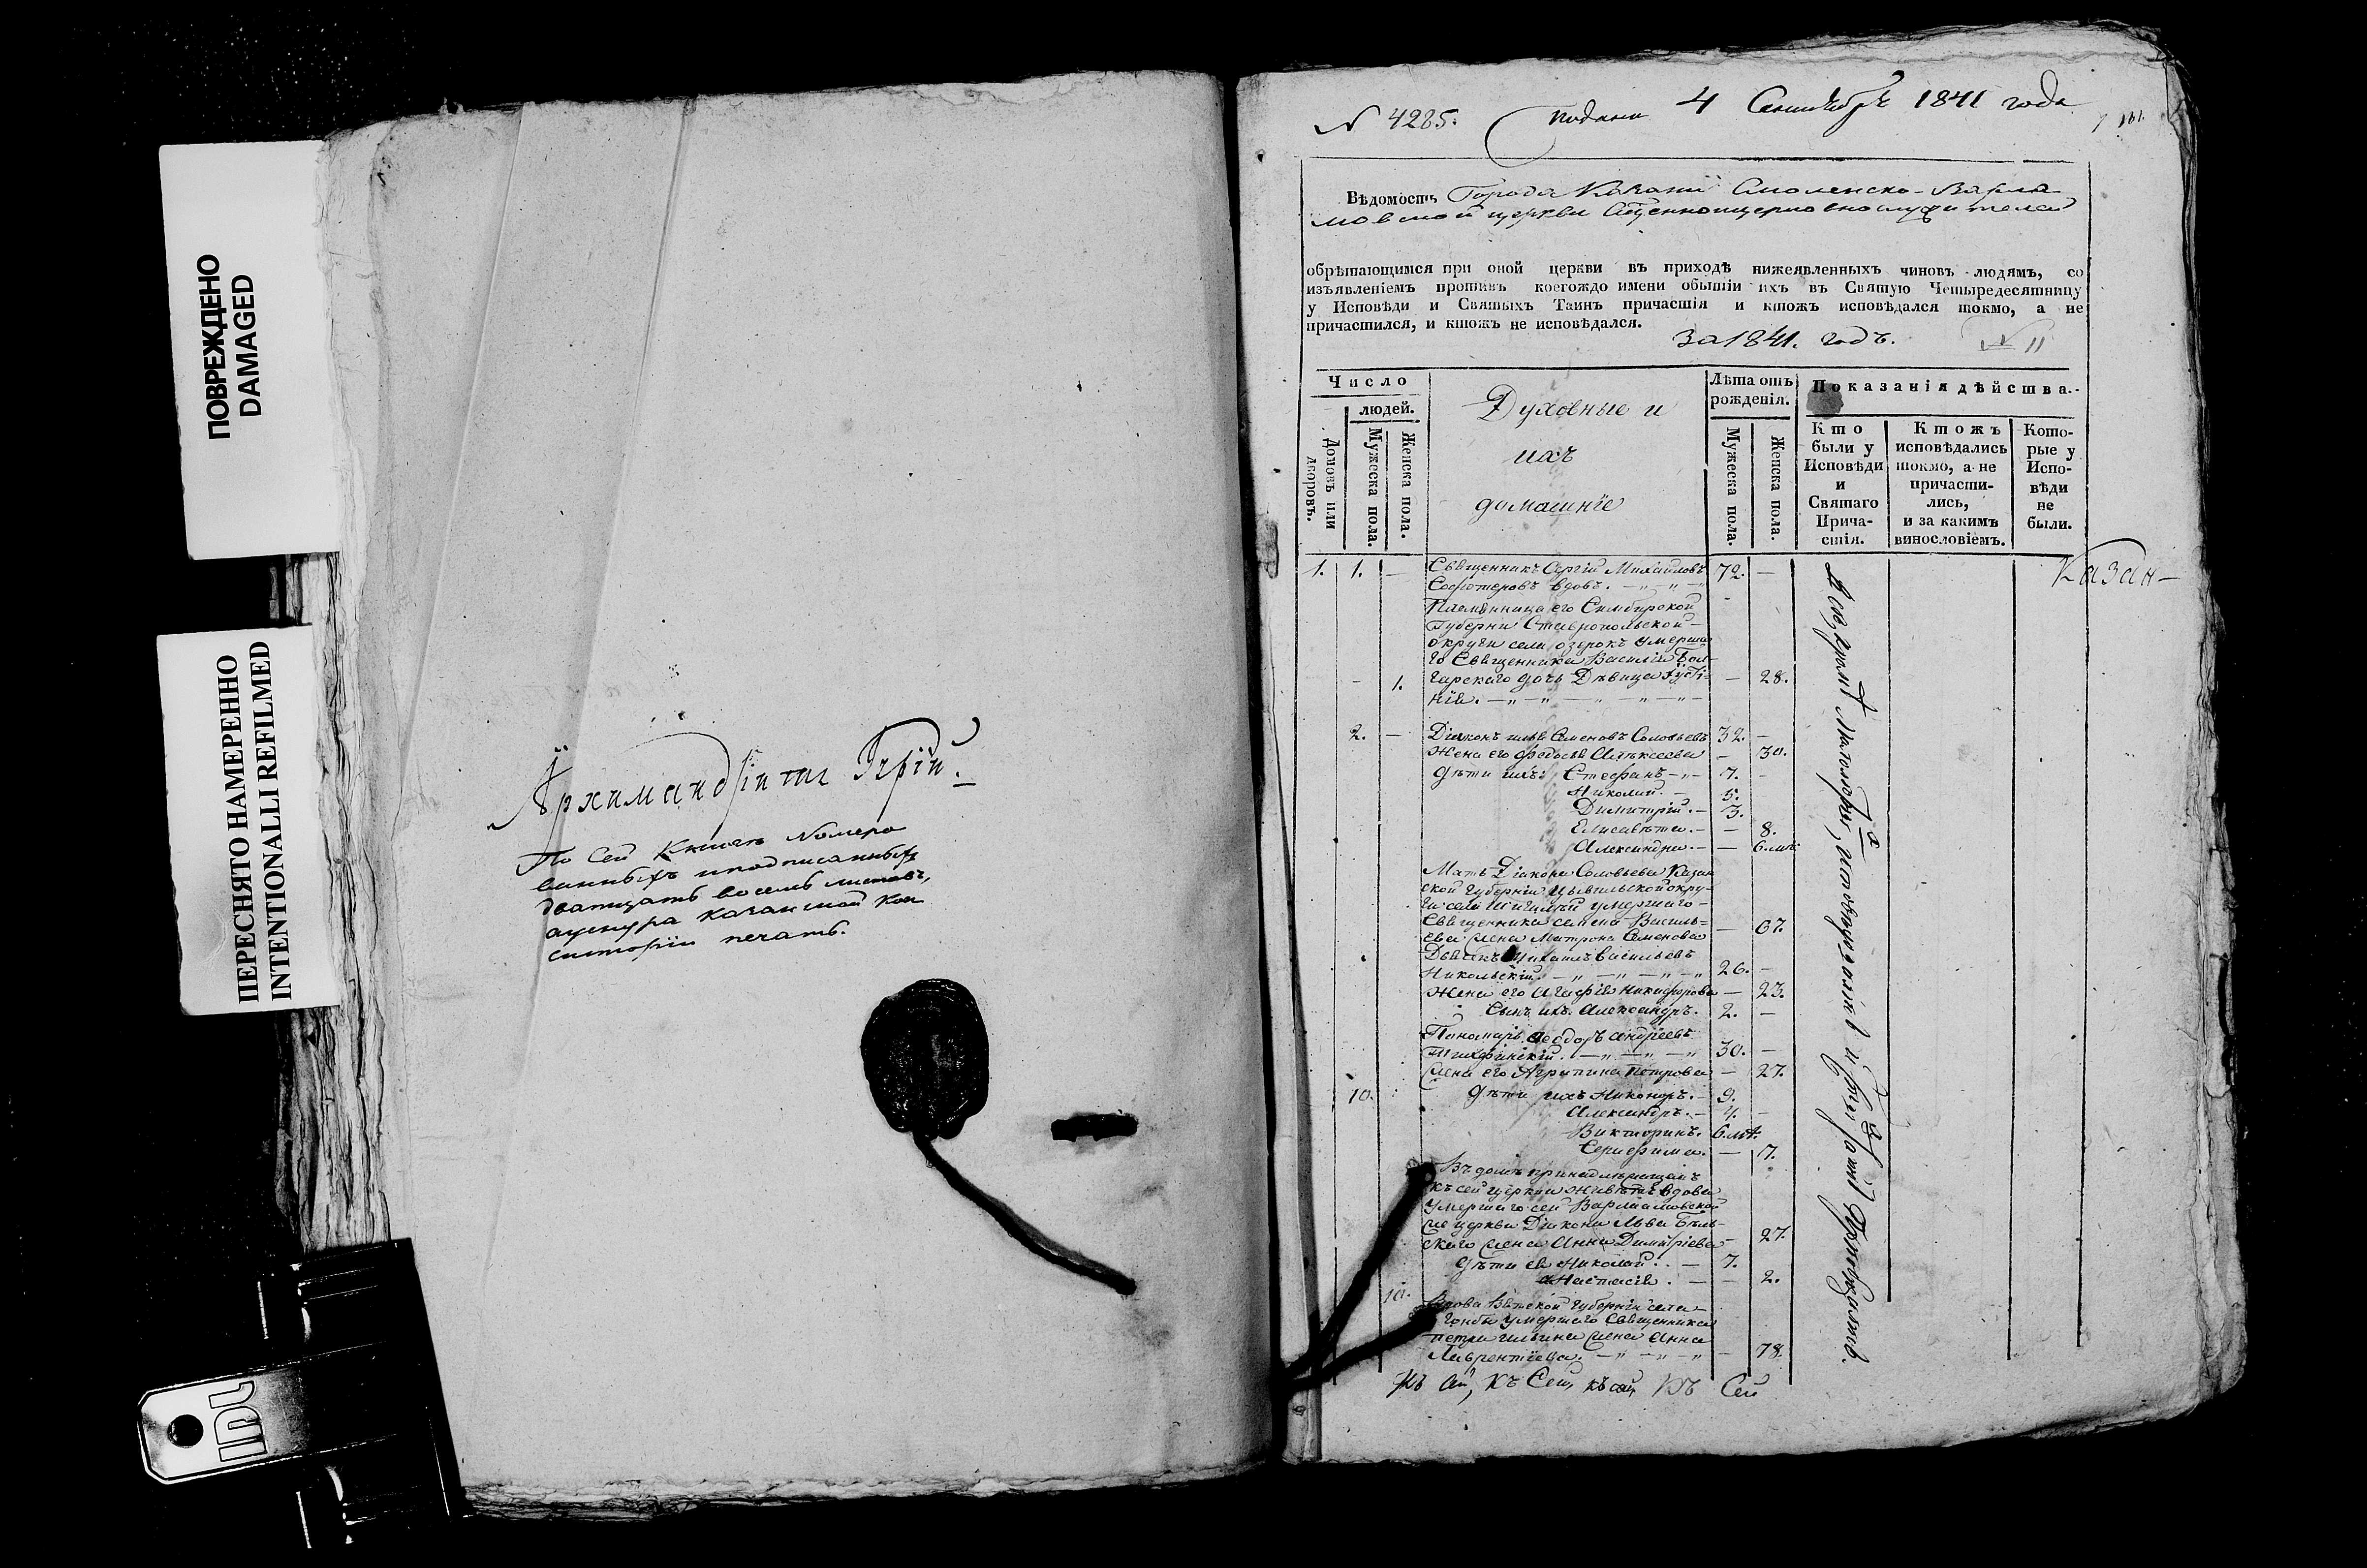 ПОВРЕЖДЕНО
DAMAGED
ПЕРЕСНЯТО НАМЕРЕННО
INTENTIONALLI REFILMED
Архимандритъ Гурій.
По сей Книгѣ Номеро
ванныхъ и подписанныхъ
дватцать восемь листовъ,
а у шнура Казанской Кон
систоріи печать.
N 4285.
Подана 4 Сентября 1841 года
Вѣдомость Города Казани Смоленско-Варла
мовской церкви священноцерковнослужителей
обрѣтающимся при оной церкви въ приходѣ нижеявленныхъ чиновъ людямъ, со
изъявленіемъ противъ коегождо имени обытіи ихъ въ Святую Четыредесятницу
у Исповѣди и Святыхъ Таинъ причастія и ктожъ исповѣдался токмо, а не
причастился, и ктожъ не исповѣдался.
За 1841. годъ. N 11
Число
людей.
Домовъ или дворовъ.
Мужеска пола.
Женска пола.
Духовные и
ихъ
домашніе
Лѣта отъ
рожденія.
Мужеска пола.
Женска пола.
Показанія дѣйства.
Кто
были у
Исповѣди
и
Святаго
Прича-
стія.
Ктожъ
исповѣдались
токмо, а не
причасти-
лись,
и за какимъ
винословіемъ.
Кото-
рые у
Испо-
вѣди
не
были.
Казан-
1. 1. — Священникъ Сергій Михайловъ 72. —
вдовъ.
Племянница его Симбирской
Губерніи Ставропольской
округи села озерокъ умерша
го Священника Василія Бол-
1. гарскаго дочь Дѣвица — 28.
2. — Діаконъ Семеновъ Соловьевъ 32. —
Жена его Федосья Алексеева — 30.
Дѣти ихъ: Стефанъ 7. —
Николай. 5.
Димитрій. 3.
Елисавета. — 8.
Александра. — 6. мѣ:
Мать Діакона Соловьева Казан
ской Губерніи Цывильской окру-
ги села умершаго
Священника Семена Василь-
ева жена Матрона Семенова — 67.
Дьячекъ Михаилъ Васильевъ
Никольскій. 26. —
Жена его Агафія Никифорова — 23.
Сынъ ихъ Александръ. 2. —
Пономарь Феодоръ Андреевъ
30. —
Жена его Агрипина Петрова — 27.
10. Дѣти ихъ Никаноръ. 9.
Александръ. 4. —
Викторинъ. 6. мѣ.
Серафима. — 7.
Въ домѣ принадлежащемъ
къ сей церкви живетъ вдова
умершаго сей Варлаамовской
же церкви Діакона Льва Бѣль-
скаго жена Анна Димитріева — 27.
Дѣти ея Николай. — 7.
Анастасія. — 2.
10. Вдова Вятской Губерніи села
умершаго Священника
Петра Ильина жена Анна
Лаврентіева. — 78.
Къ сей, Къ Сей, къ сей, Къ Сей